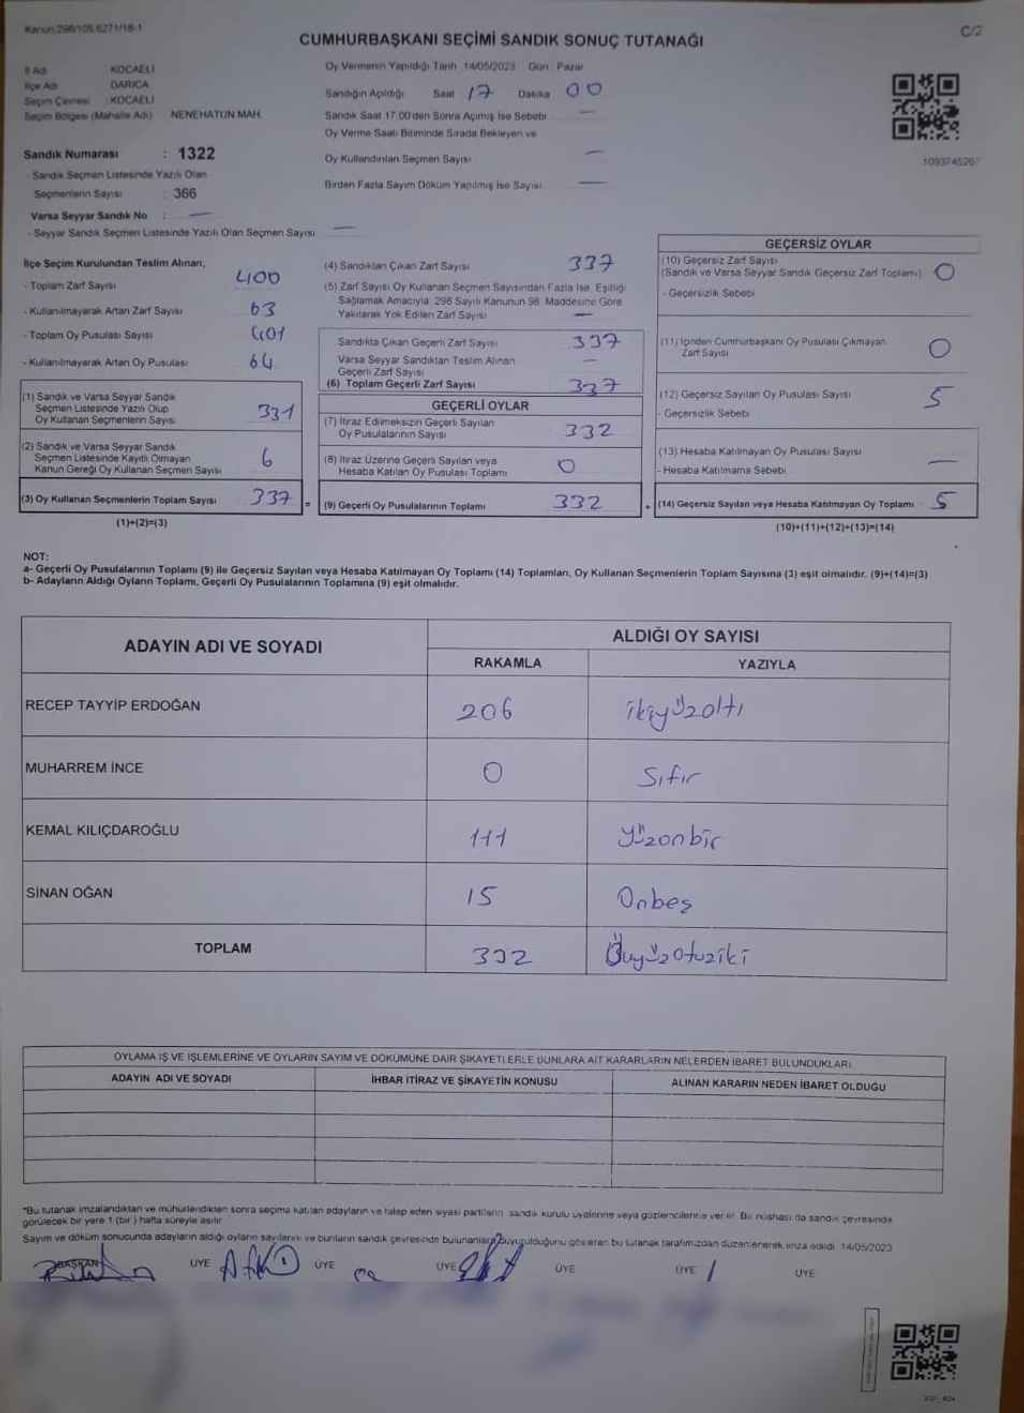 Kanun:298/105,6271/18-1
C/2
CUMHURBAŞKANI SEÇİMİ SANDIK SONUÇ TUTANAĞI
İl Adı : KOCAELİ
İlçe Adı : DARICA
Seçim Çevresi : KOCAELİ
Seçim Bölgesi (Mahalle Adı) : NENEHATUN MAH.
Sandık Numarası : 1322
- Sandık Seçmen Listesinde Yazılı Olan
Seçmenlerin Sayısı : 366
Varsa Seyyar Sandık No : —
- Seyyar Sandık Seçmen Listesinde Yazılı Olan Seçmen Sayısı —
Oy Vermenin Yapıldığı Tarih :14/05/2023 Gün : Pazar
Sandığın Açıldığı Saat 17 Dakika 00
Sandık Saat 17.00'den Sonra Açılmış İse Sebebi —
Oy Verme Saati Bitiminde Sırada Bekleyen ve
Oy Kullandırılan Seçmen Sayısı —
Birden Fazla Sayım Döküm Yapılmış İse Sayısı —
İlçe Seçim Kurulundan Teslim Alınan;
- Toplam Zarf Sayısı 400
- Kullanılmayarak Artan Zarf Sayısı 63
- Toplam Oy Pusulası Sayısı 401
- Kullanılmayarak Artan Oy Pusulası 64
(1) Sandık ve Varsa Seyyar Sandık
Seçmen Listesinde Yazılı Olup
Oy Kullanan Seçmenlerin Sayısı 331
(2) Sandık ve Varsa Seyyar Sandık
Seçmen Listesinde Kayıtlı Olmayan
Kanun Gereği Oy Kullanan Seçmen Sayısı 6
(3) Oy Kullanan Seçmenlerin Toplam Sayısı 337 =
(1)+(2)=(3)
(4) Sandıktan Çıkan Zarf Sayısı 337
(5) Zarf Sayısı Oy Kullanan Seçmen Sayısından Fazla İse, Eşitliği
Sağlamak Amacıyla, 298 Sayılı Kanunun 98. Maddesine Göre
Yakılarak Yok Edilen Zarf Sayısı —
Sandıkta Çıkan Geçerli Zarf Sayısı 337
Varsa Seyyar Sandıktan Teslim Alınan
Geçerli Zarf Sayısı —
(6) Toplam Geçerli Zarf Sayısı 337
GEÇERLİ OYLAR
(7) İtiraz Edilmeksizin Geçerli Sayılan
Oy Pusulalarının Sayısı 332
(8) İtiraz Üzerine Geçerli Sayılan veya
Hesaba Katılan Oy Pusulası Toplamı 0
(9) Geçerli Oy Pusulalarının Toplamı 332 +
GEÇERSİZ OYLAR
(10) Geçersiz Zarf Sayısı
(Sandık ve Varsa Seyyar Sandık Geçersiz Zarf Toplamı) 0
- Geçersizlik Sebebi
(11) İçinden Cumhurbaşkanı Oy Pusulası Çıkmayan
Zarf Sayısı 0
(12) Geçersiz Sayılan Oy Pusulası Sayısı 5
- Geçersizlik Sebebi
(13) Hesaba Katılmayan Oy Pusulası Sayısı —
- Hesaba Katılmama Sebebi
(14) Geçersiz Sayılan veya Hesaba Katılmayan Oy Toplamı 5
(10)+(11)+(12)+(13)=(14)
NOT:
a- Geçerli Oy Pusulalarının Toplamı (9) ile Geçersiz Sayılan veya Hesaba Katılmayan Oy Toplamı (14) Toplamları, Oy Kullanan Seçmenlerin Toplam Sayısına (3) eşit olmalıdır. (9)+(14)=(3)
b- Adayların Aldığı Oyların Toplamı, Geçerli Oy Pusulalarının Toplamına (9) eşit olmalıdır.
ADAYIN ADI VE SOYADI ALDIĞI OY SAYISI
RAKAMLA YAZIYLA
RECEP TAYYİP ERDOĞAN 206 ikiyüzaltı
MUHARREM İNCE 0 Sıfır
KEMAL KILIÇDAROĞLU 111 Yüzonbir
SİNAN OĞAN 15 Onbeş
TOPLAM 332 Üçyüzotuziki
OYLAMA İŞ VE İŞLEMLERİNE VE OYLARIN SAYIM VE DÖKÜMÜNE DAİR ŞİKAYETLERLE BUNLARA AİT KARARLARIN NELERDEN İBARET BULUNDUKLARI
ADAYIN ADI VE SOYADI İHBAR İTİRAZ VE ŞİKAYETİN KONUSU ALINAN KARARIN NEDEN İBARET OLDUĞU
*Bu tutanak imzalandıktan ve mühürlendikten sonra seçime katılan adayların ve talep eden siyasi partilerin sandık kurulu üyelerine veya gözlemcilerine verilir. Bir nüshası da sandık çevresinde
görülecek bir yere 1 (bir) hafta süreyle asılır.
Sayım ve döküm sonucunda adayların aldığı oyların sayılarını ve bunların sandık çevresinde bulunanlara duyurulduğunu gösteren bu tutanak tarafımızdan düzenlenerek imza edildi. 14/05/2023
BAŞKAN ÜYE ÜYE ÜYE ÜYE ÜYE ÜYE